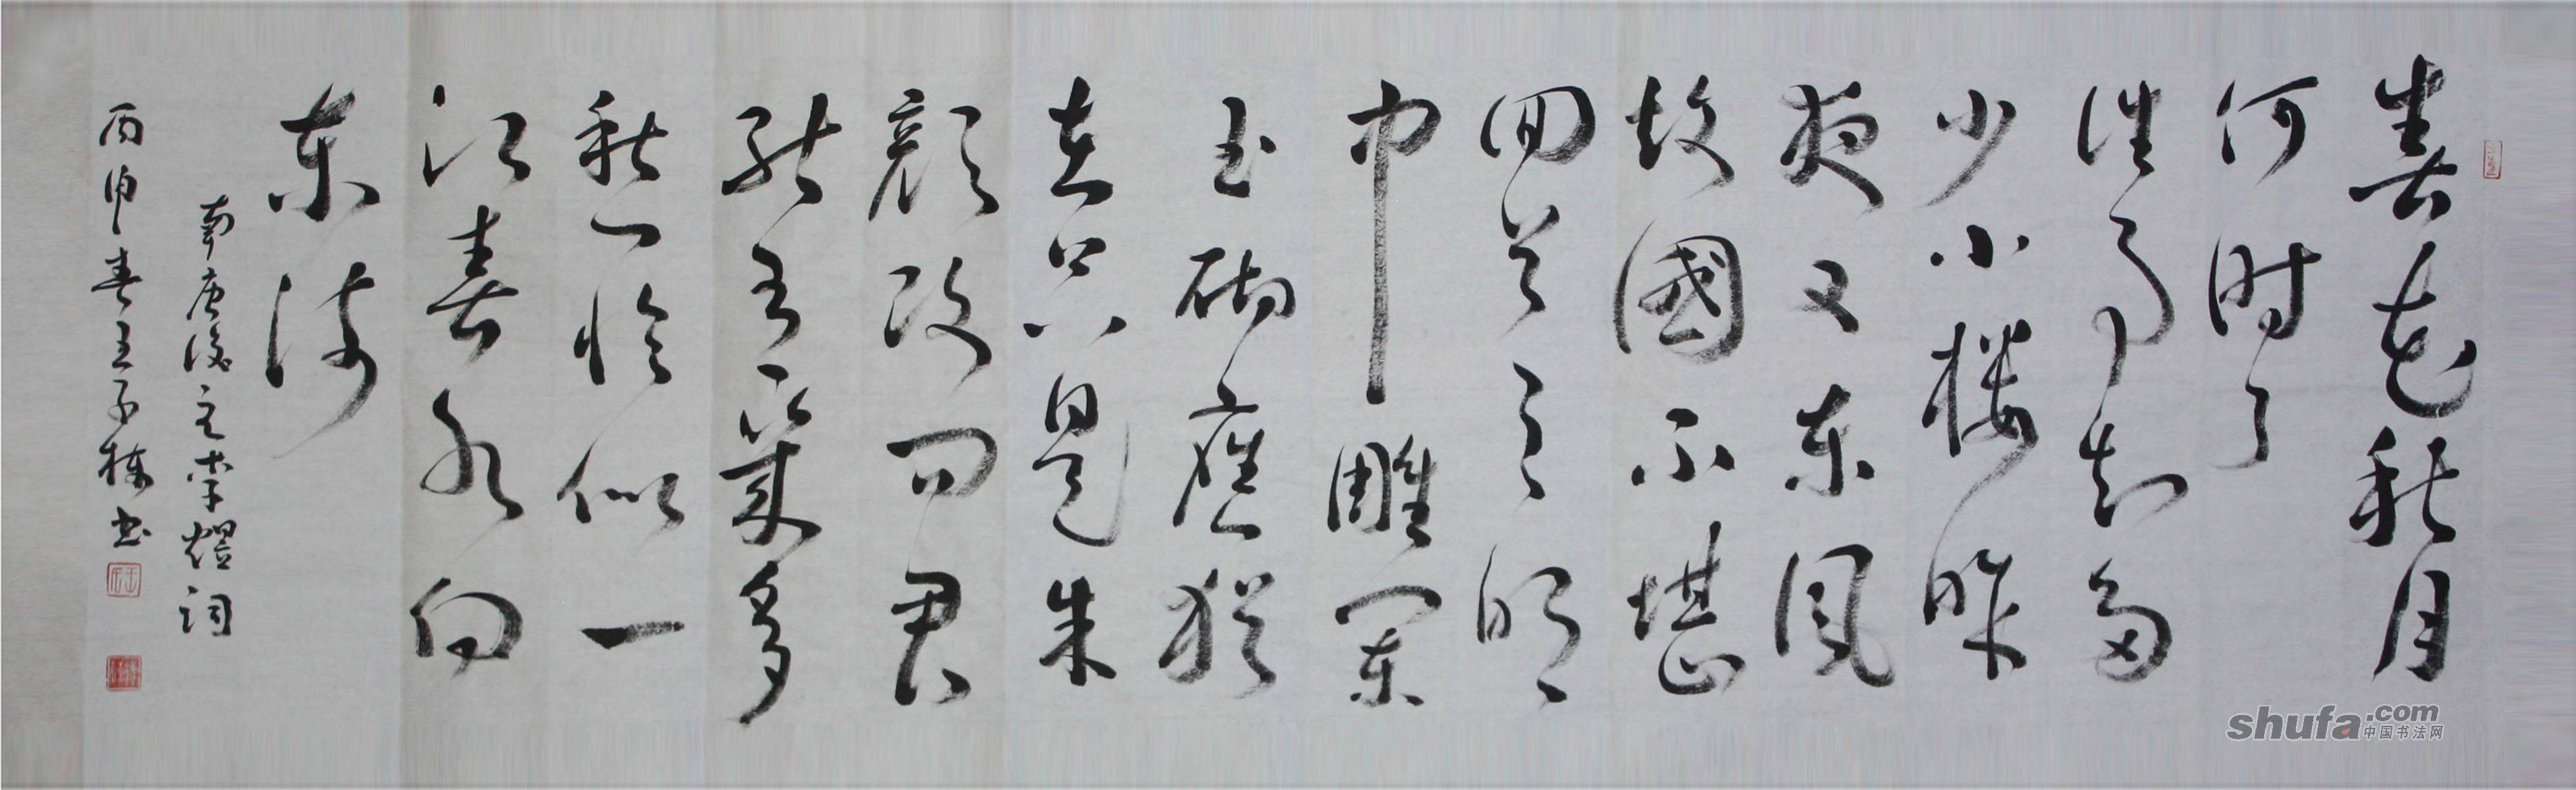 春花秋月
何时了
往事知多
少小楼昨
夜又东风
故國不堪
回首月明
中雕阑
玉砌應犹
在只是朱
颜改问君
能有幾多
愁恰似一
江春水向
东流
南唐後主李煜词
丙申春王子栋书
shufa.com
中国书法网